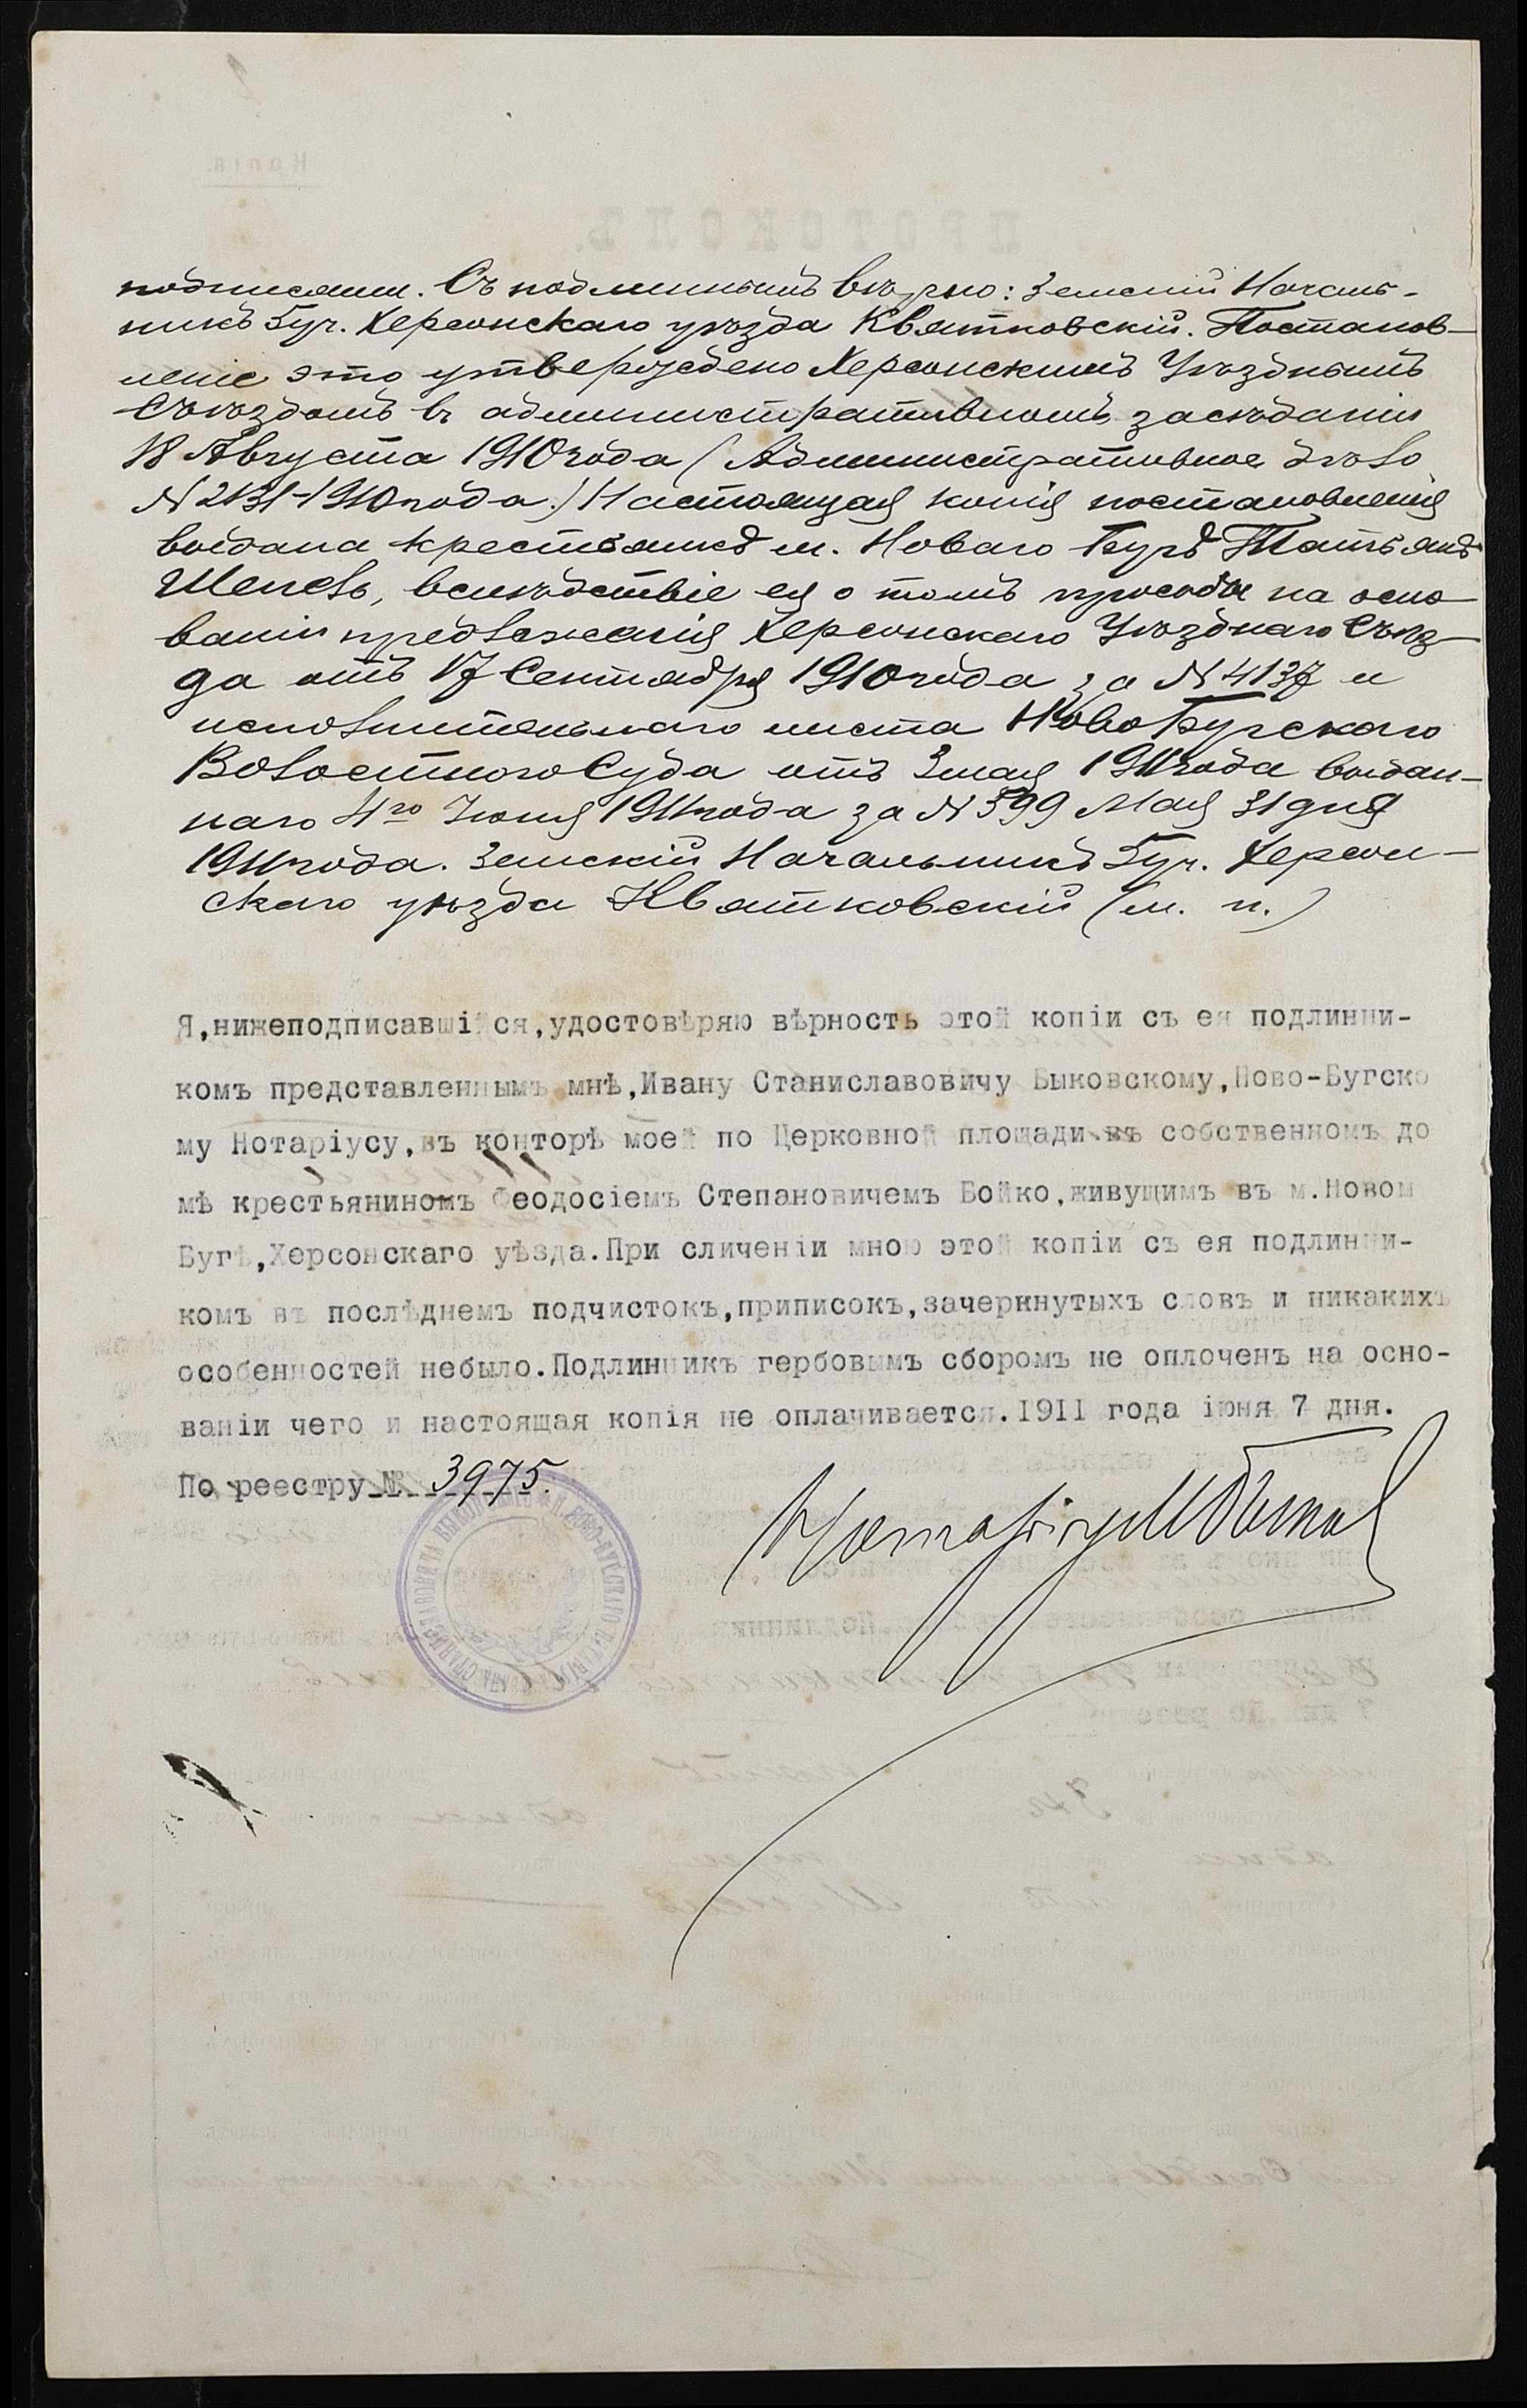 подписями. Съ подлиннымъ вѣрно: Земскій Началь-
никъ 5 уч. Херсонскаго уѣзда Квятковскій. Постанов-
леніе это утверждено Херсонскимъ Уѣзднымъ
Съѣздомъ въ административномъ засѣданіи
18 Августа 1910 года (Административное дѣло
N 2131-1910 года.) Настоящая копія постановленія
выдана крестьянкѣ м. Новаго Буга Татьянѣ
Шепель, вслѣдствіе ея о томъ просьбы на осно-
ваніи предложенія Херсонскаго Уѣзднаго Съѣз-
да отъ 17 Сентября 1910 года за N 4137 и
исполнительнаго листа Ново Бугскаго
Волостного Суда отъ 3 мая 1911 года выдан-
наго 4го Іюня 1911 года за N 399 Мая 31 дня
1911 года. Земскій Начальникъ 5 уч. Херсон-
скаго уѣзда Квятковскій (м. п.)
Я,нижеподписавшійся,удостовѣряю вѣрность этой копіи съ ея подлинни-
комъ представленнымъ мнѣ,Ивану Станиславовичу Быковскому,Ново-Бугско
му Нотаріусу,въ конторѣ моей по Церковной площади въ собственномъ до
мѣ крестьяниномъ Феодосіемъ Степановичемъ Бойко,живущимъ въ м.Новом
Бугѣ,Херсонскаго уѣзда.При сличеніи мною этой копіи съ ея подлинни-
комъ въ послѣднемъ подчистокъ,приписокъ,зачеркнутыхъ словъ и никакихъ
особенностей небыло.Подлинникъ гербовымъ сборомъ не оплоченъ на осно-
ваніи чего и настоящая копія не оплачивается.1911 года іюня 7 дня.
По реестру № 3975.
Нотаріусъ